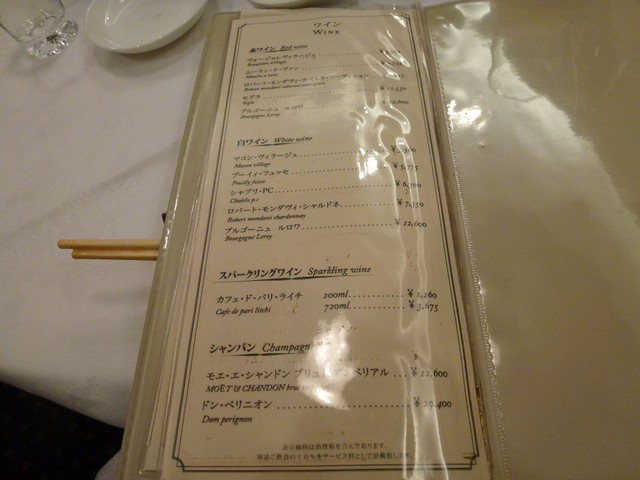 ワイン
WINE
赤ワイン Red wine
ヴォージョレヴィラージュ
Beaujolais villages
ムーラン・ナ・ヴァン
Moulin a vent
ロバート・モンダヴィ・カベルネ・ソーヴィニヨン
Robert mondavi cabernet sauvignon
セグラ ¥11,550
Segla
ブルゴーニュ ルロワ ¥12,600
Bourgogne Leroy
白ワイン White wine
マコン・ヴィラージュ
Macon village
プーィィ・フュッセ ¥5,775
Pouilly fuisse
シャブリ・P.C ¥6,300
Chablis p.c
ロバート・モンダヴィ・シャルドネ ¥7,350
Robert mondavi chardonnay
ブルゴーニュ ルロワ ¥12,600
Bourgogne Leroy
スパークリングワイン Sparkling wine
カフェ・ド・パリ・ライチ 200ml. ¥1,260
Cafe de pari litchi 720ml. ¥3,675
シャンパン Champagn
モエ・エ・シャンドン ブリュト アンペリアル ¥12,600
MOËT & CHANDON brut
ドン・ペリニオン ¥29,400
Dom perignon
表示価格は消費税を含んでおります。
別途ご飲食の10%をサービス料として頂戴致します。